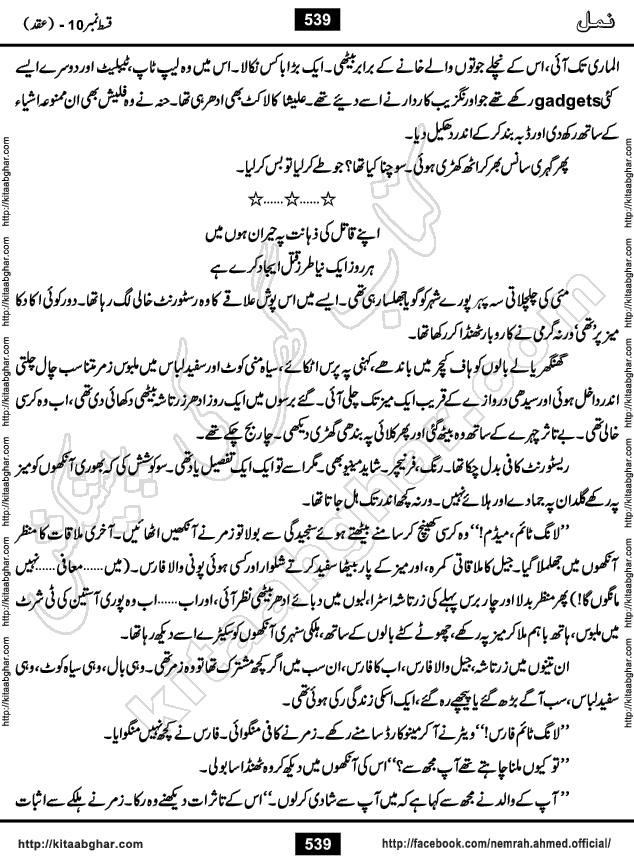 قسط نمبر 10 - (عقد)
539
نمل
الماری تک آئی، اس کے نچلے جوتوں والے خانے کے برابر بیٹھی۔ ایک بڑا باکس نکالا۔ اس میں وہ لیپ ٹاپ، ٹیبلیٹ اور دوسرے ایسے
کئی gadgets رکھے تھے جو اورنگزیب کاردار نے اسے دیئے تھے۔ علیشا کا لاکٹ بھی ادھر ہی تھا۔ حنہ نے وہ فلیش بھی ان ممنوعہ اشیاء
کے ساتھ رکھ دی اور ڈبہ بند کر کے اندر دھکیل دیا۔
پھر گہری سانس بھر کر اٹھ کھڑی ہوئی۔ سوچنا کیا تھا؟ جو طے کر لیا تو بس کر لیا۔
☆......☆......☆
اپنے قاتل کی ذہانت پہ حیران ہوں میں
ہر روز ایک نیا طرز قتل ایجاد کرے ہے
مئی کی چلچلاتی سہ پہر پورے شہر کو گویا جھلسا رہی تھی۔ ایسے میں اس پوش علاقے کا وہ رسٹورنٹ خالی لگ رہا تھا۔ دور کوئی اکا دکا
میز پر تھی، ورنہ گرمی نے کاروبار ٹھنڈا کر رکھا تھا۔
گھنگھریالے بالوں کو ہاف کیچر میں باندھے، کہنی پہ پرس اٹکائے، سیاہ منی کوٹ اور سفید لباس میں ملبوس زمر متناسب چال چلتی
اندر داخل ہوئی اور سیدھی دروازے کے قریب ایک میز تک چلی آئی۔ گئے برسوں میں ایک روز ادھر زرتاشہ بیٹھی دکھائی دی تھی، اب وہ کرسی
خالی تھی۔ بے تاثر چہرے کے ساتھ وہ بیٹھ گئی اور پھر کلائی پہ بندھی گھڑی دیکھی۔ چار بج چکے تھے۔
ریسٹورنٹ کافی بدل چکا تھا۔ رنگ، فرنیچر۔ شاید مینو بھی۔ مگر اسے تو ایک ایک تفصیل یاد تھی۔ سو کوشش کی کہ بھوری آنکھوں کو میز
پہ رکھے گلدان پہ جما دے اور ہلائے نہیں۔ ورنہ کچھ اندر تک ہل جاتا تھا۔
’’لانگ ٹائم، میڈم!‘‘ وہ کرسی کھینچ کر سامنے بیٹھتے ہوئے سنجیدگی سے بولا تو زمر نے آنکھیں اٹھائیں۔ آخری ملاقات کا منظر
آنکھوں میں جھلملا گیا۔ جیل کا ملاقاتی کمرہ، اور میز کے پار بیٹھا سفید کرتے شلوار اور کسی ہوئی پونی والا فارس۔ (میں......معافی......نہیں
مانگوں گا!) پھر منظر بدلا اور چار برس پہلے کی زرتاشہ اسٹرا، لبوں میں دبائے ادھر بیٹھی نظر آئی، اور اب......اب وہ پوری آستین کی ٹی شرٹ
میں ملبوس، ہاتھ باہم ملا کر میز پہ رکھے، چھوٹے کٹے بالوں کے ساتھ، ہلکی سنہری آنکھوں کو سکیڑے اسے دیکھ رہا تھا۔
ان تینوں میں زرتاشہ، جیل والا فارس، اب کا فارس، ان سب میں اگر کچھ مشترک تھا تو وہ زمر تھی۔ وہی بال، وہی سیاہ کوٹ، وہی
سفید لباس، سب آگے بڑھ گئے یا پیچھے رہ گئے، ایک اسکی زندگی رکی ہوئی تھی۔
’’لانگ ٹائم فارس!‘‘ ویٹر نے آ کر مینو کارڈ سامنے رکھے۔ زمر نے کافی منگوائی۔ فارس نے کچھ نہیں منگوایا۔
’’تو کیوں ملنا چاہتے تھے آپ مجھ سے؟‘‘ اس کی آنکھوں میں دیکھ کر وہ ٹھنڈا سا بولی۔
’’آپ کے والد نے مجھ سے کہا ہے کہ میں آپ سے شادی کر لوں۔‘‘ اس کے تاثرات دیکھنے وہ رکا۔ زمر نے ہلکے سے اثبات
http://kitaabghar.com
http://kitaabghar.com
http://kitaabghar.com
http://kitaabghar.com
http://kitaabghar.com
http://kitaabghar.com
http://kitaabghar.com
http://kitaabghar.com
http://kitaabghar.com
http://kitaabghar.com
http://kitaabghar.com
http://kitaabghar.com
کتاب گھر کی پیشکش
kitaabghar.com
http://kitaabghar.com
539
http://facebook.com/nemrah.ahmed.official/